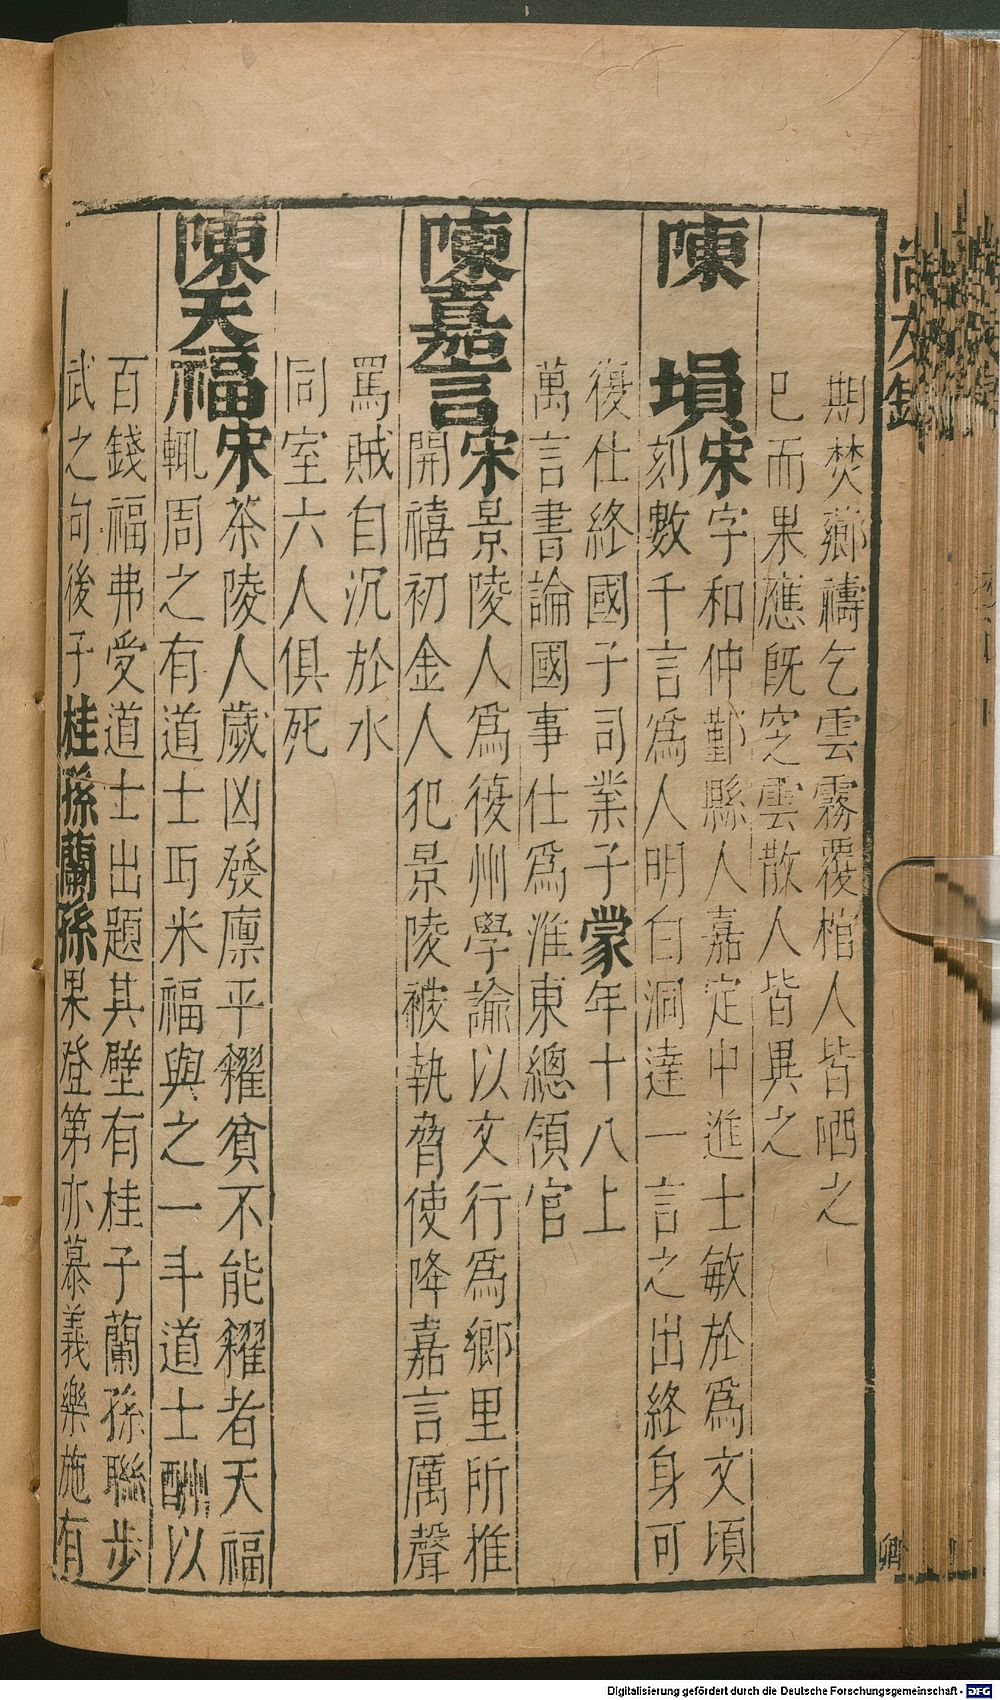 期焚薌禱乞雲霧覆棺人皆哂之
已而果應既窆雲散人皆異之
陳塤宋字和仲鄞縣人嘉定中進士敏於為文頃
刻數千言爲人明白洞達一言之出終身可
復仕終國子司業子蒙年十八上
萬言書論國事仕爲淮東總領官
陳嘉言宋景陵人爲復州學諭以文行爲鄉里所推
開禧初金人犯景陵被執脅使降嘉言厲聲
罵賊自沉於水
同室六人俱死
陳天福宋茶陵人歲凶發廪平糶貧不能糶者天福
輒周之有道士丏米福與之一斗道士酬以
百錢福弗受道士出題其壁有桂子蘭孫聯步
武之句後子桂孫蘭孫果登第亦慕義樂施有
尚友錄
Digitalisierung gefördert durch die Deutsche Forschungsgemeinschaft - DFG